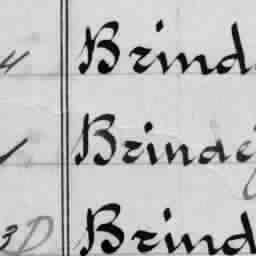 4 Brind
Brindej
3D Brind